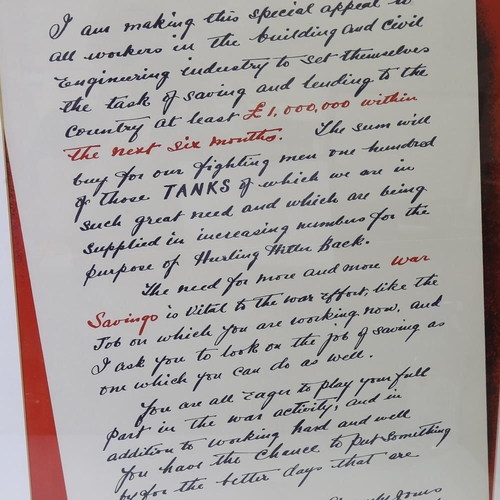 I am making this special appeal to
all workers in the building and civil
Engineering industry to set themselves
the task of saving and lending to the
country at least £1,000,000 within
the next six months. The sum will
buy for our fighting men one hundred
of those TANKS of which we are in
such great need and which are being
supplied in increasing numbers for the
purpose of Hurling Hitler Back.
The need for more and more War
Savings is Vital to the war effort, like the
Job on which you are working now, and
I ask you to look on the job of saving as
one which you can do as well.
You are all Eager to play your full
part in the war activity, and in
addition to working hard and well
you have the chance to put something
by for the better days that are